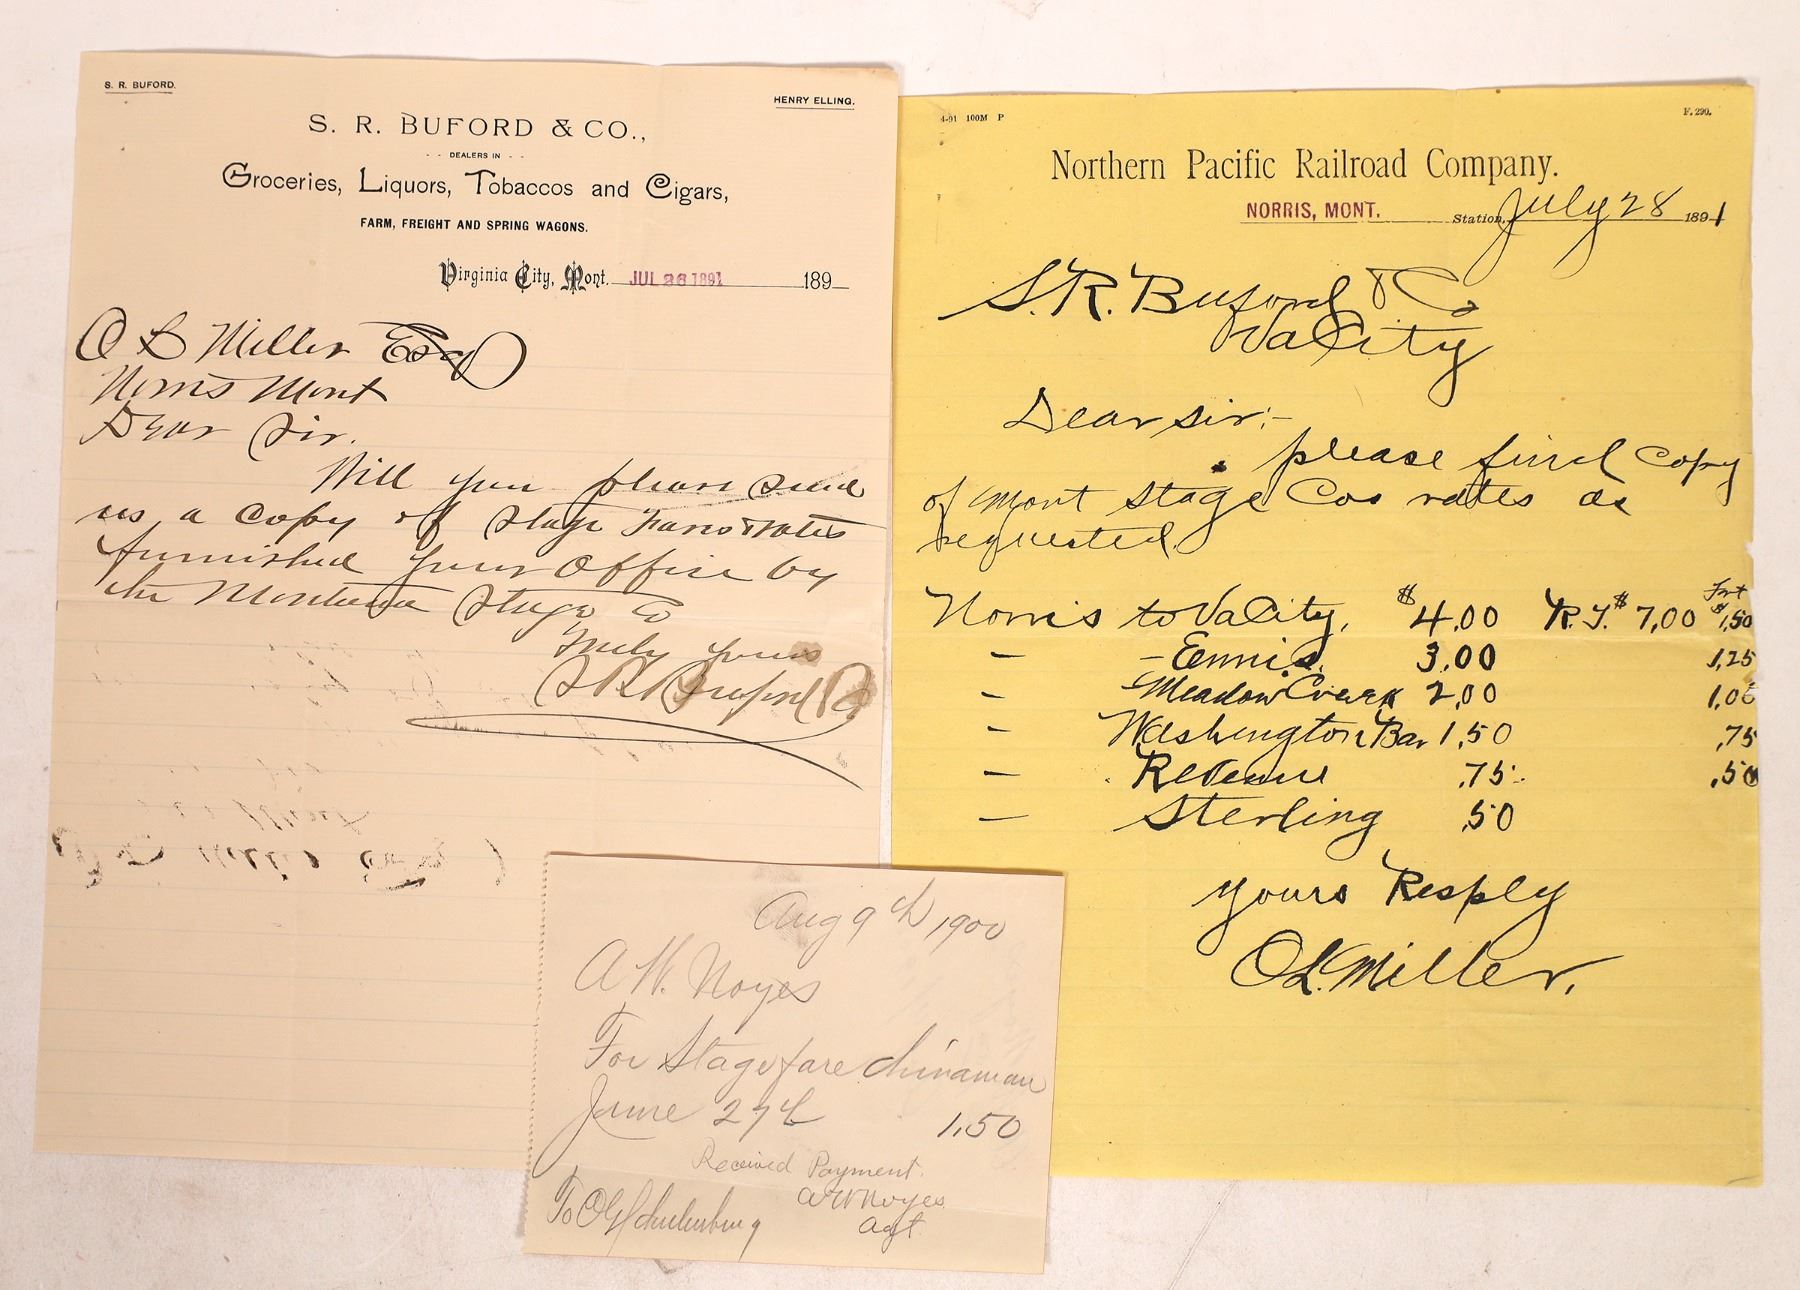 S. R. BUFORD.
HENRY ELLING.
S. R. BUFORD & CO.,
- - DEALERS IN - -
Groceries, Liquors, Tobaccos and Cigars,
FARM, FREIGHT AND SPRING WAGONS.
Virginia City, Mont. JUL 26 1891 189
O L Miller Esq
Norris Mont
Dear Sir.
Will you please send
us a copy of Stage Fares & rates
furnished your office by
the Montana Stage Co
Truly yours
S R Buford Co
4-91 100M P
F. 290.
Northern Pacific Railroad Company.
NORRIS, MONT. Station, July 28 1891
S. R. Buford & Co
Va City
Dear sir:-
please find copy
of Mont Stage Cos rates as
requested.
Frt
Norris to Va City, $4.00 R.T. $7,00 $1,50
— - Ennis. 3.00 1,25
— - Meadow Creek 2,00 1,00
— Washington Bar 1,50 ,75
— Revenue .75 .50
— Sterling .50
Yours Resply
O.L. Miller.
Aug 9th 1900
A W. Noyes
For Stage fare Chinaman
June 27th 1.50
Received Payment.
A W Noyes
Agt.
To